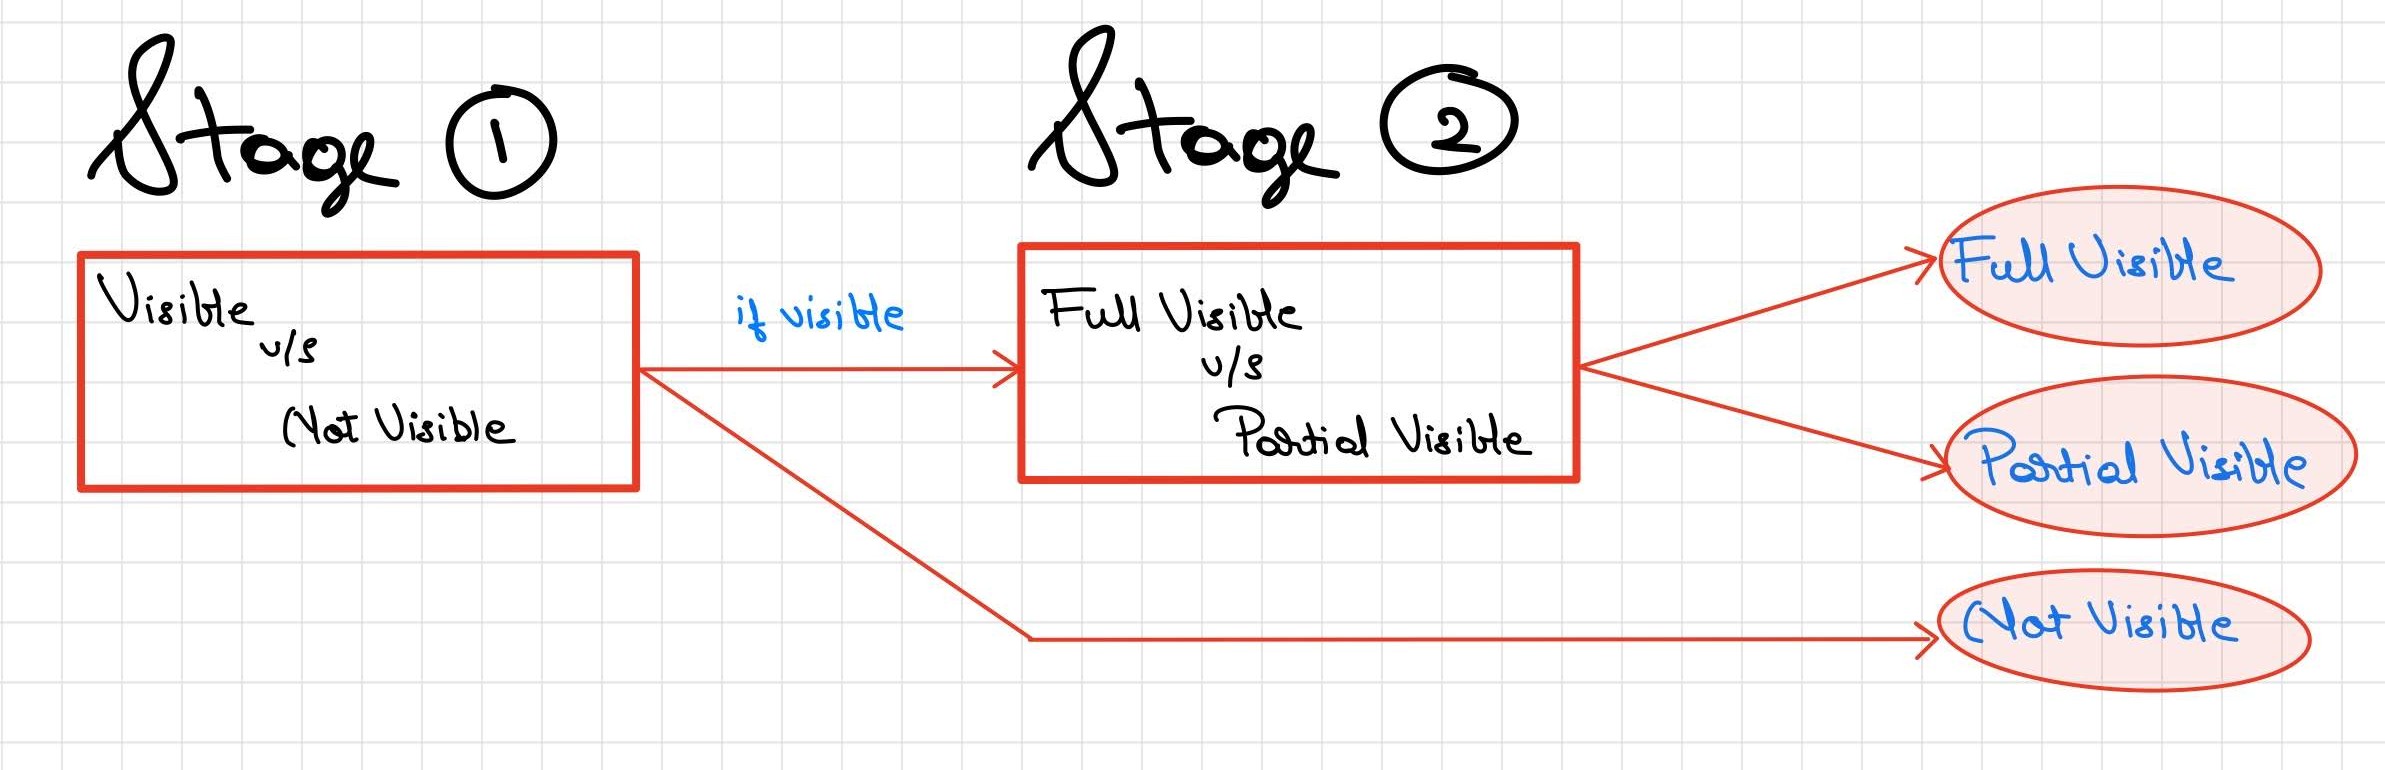 Stage 1
Stage 2
Visible
v/s
Not Visible
if visible
Full Visible
v/s
Partial Visible
Full Visible
Partial Visible
Not Visible